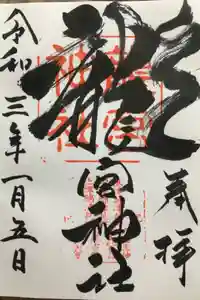 奉拝
龍宮神社
令和三年一月五日